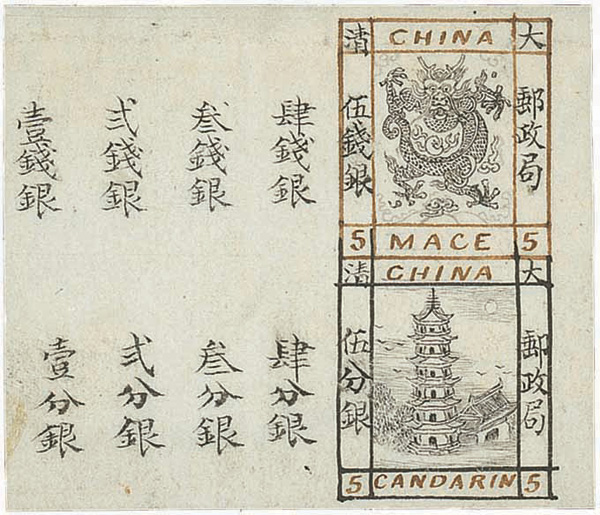 大清
CHINA
郵政局
伍錢銀
5 MACE 5
肆錢銀
叁錢銀
弍錢銀
壹錢銀
大清
CHINA
郵政局
伍分銀
5 CANDARIN 5
肆分銀
叁分銀
弍分銀
壹分銀